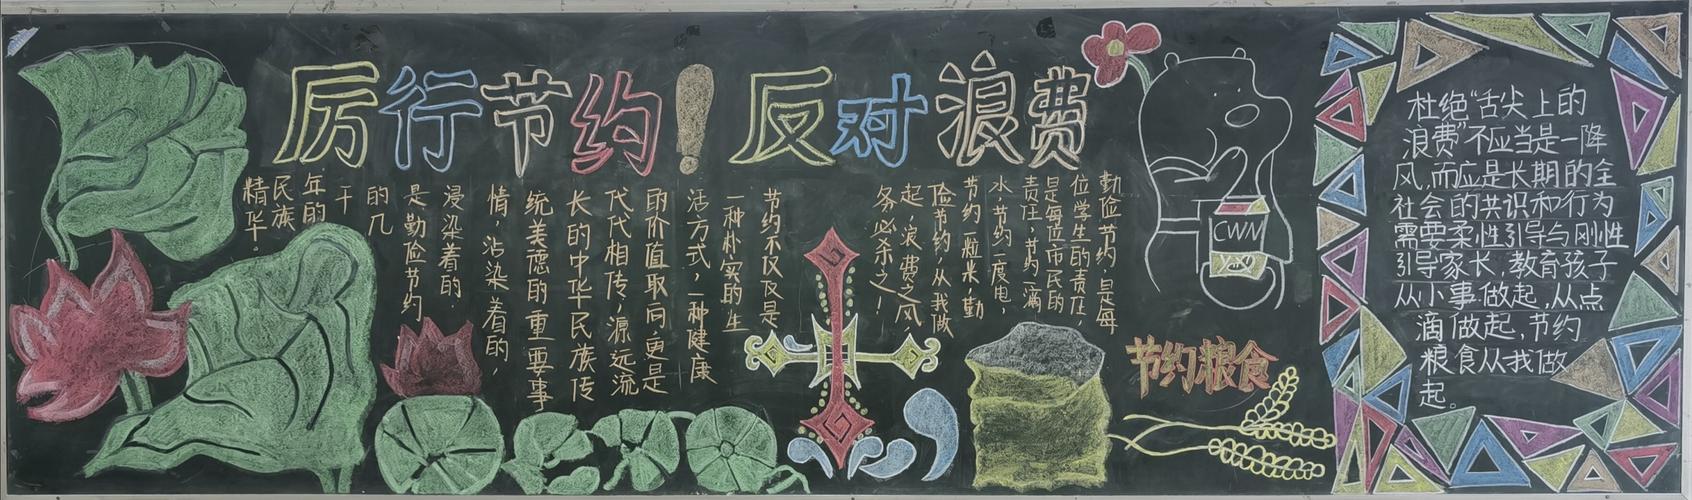 厉行节约！反对浪费
勤俭节约,是每
位学生的责任,
是每位市民的
责任,节约一滴
水,节约一度电,
节约一粒米,勤
俭节约,从我做
起,浪费之风,
务必杀之！
节约不仅仅是
一种朴实的生
活方式,一种健康
的价值取向,更是
代代相传,源远流
长的中华民族传
统美德的重要事
情,沾染着的,
浸染着的
是勤俭节约
的几
千
年的
民族
精华。
CWN
节约粮食
杜绝“舌尖上的
浪费”不应当是一降
风,而应是长期的全
社会的共识和行为
需要柔性引导与刚性
引导家长,教育孩子
从小事做起,从点
滴做起,节约
粮食从我做
起。